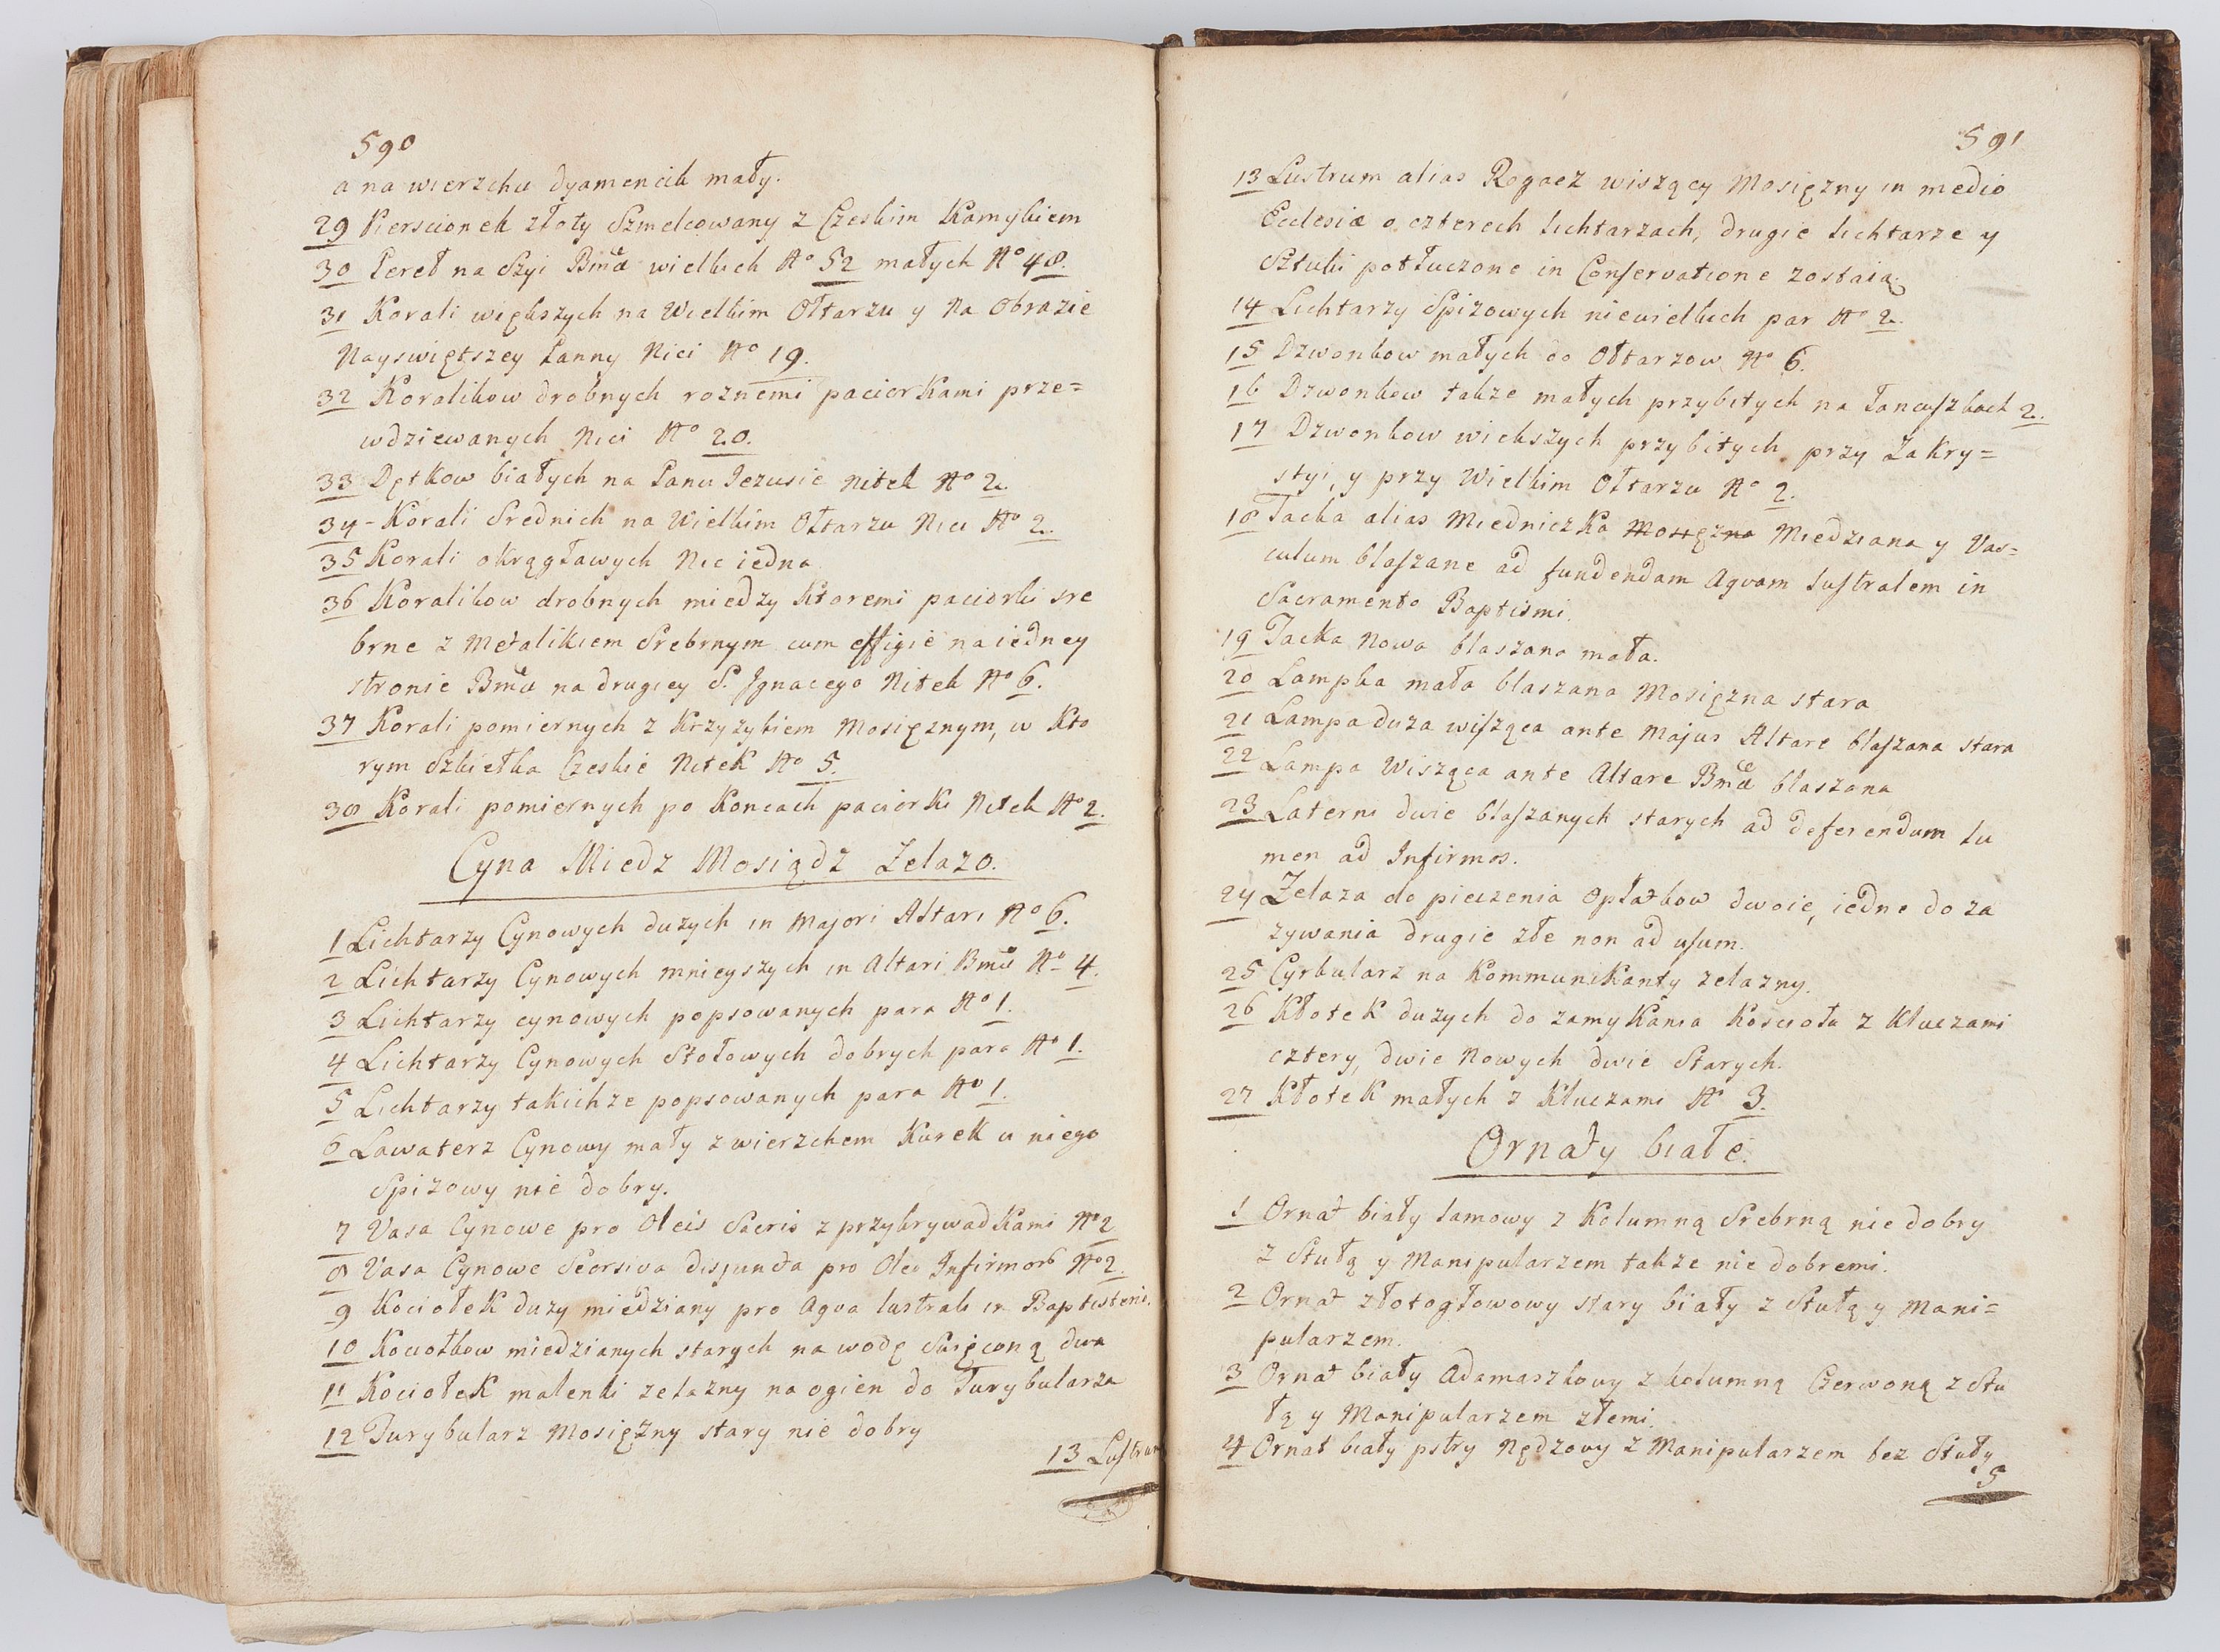 590
a na wierzchu dyamencik mały.
29 Pierscionek złoty Szmelcowany z Czeskim Kamykiem
30 Pereł na Szyi Bmæ wielkich No 52 małych No 48.
31 Korali większych na Wielkim Ołtarzu y Na Obrazie
Nayswiętszey Panny Nici No 19.
32 Koralikow drobnych roznemi paciorkami prze=
wdziewanych Nici No 20.
33 Dętkow białych na Panu Jezusie Nitek No 2.
34 - Korali Srednich na Wielkim Ołtarzu Nici No 2.
35 Korali okrągławych Nic iedna
36 Koralikow drobnych miedzy Ktoremi paciorki sre
brne z Metalikiem Srebrnym cum effigie na iedney
stronie Bmæ na drugiey S. Jgnacego Nitek No 6.
37 Korali pomiernych z Krzyzykiem Mosięznym, w Kto
rym Szkiełka Czeskie Nitek No 5.
38 Korali pomiernych po Koncach paciorki Nitek No 2.
Cyna Miedz Mosiądz Zelazo.
1 Lichtarzy Cynowych duzych in Majori Altari No 6.
2 Lichtarzy Cynowych mnieyszych in Altari Bmæ No 4.
3 Lichtarzy cynowych popsowanych para No 1.
4 Lichtarzy Cynowych Stołowych dobrych para No 1.
5 Lichtarzy takichze popsowanych para No 1.
6 Lawaterz Cynowy mały z wierzchem Kurek u niego
Spizowy nie dobry.
7 Vasa Cynowe pro Oleis Sacris z przykrywadkami No 2
8 Vasa Cynowe Seorsiva disjuncta pro Oleo Infirmor No 2.
9 Kociołek duzy miedziany pro Aqua lustrali in Baptisterio.
10 Kociołkow miedzianych starych na wodę Swięconą dwa
11 Kociołek malenki zelazny na ogien do Turybularza
12 Turybularz Mosięzny stary nie dobry
13 Lustrum
591
13 Lustrum alias Rogacz wiszący Mosięzny in medio
Ecclesiæ o czterech lichtarzach, drugie lichtarze y
Sztuki potłuczone in Conservatione zostaią.
14 Lichtarzy Spizowych niewielkich par No 2.
15 Dzwonkow małych do Ołtarzow No 6.
16 Dzwonkow takze małych przybitych na Łancuszkach 2.
17 Dzwonkow wiekszych przybitych przy Zakry=
styi, y przy Wielkim Ołtarzu No 2.
18 Tacka alias Miedniczka Mosięzna Miedziana y Vas=
culum blaszane ad fundendam Aquam lustralem in
Sacramento Baptismi.
19 Tacka Nowa blaszana mała.
20 Lampka mała blaszana Mosięzna stara
21 Lampa duza wisząca ante Majus Altare blaszana stara
22 Lampa Wisząca ante Altare Bmæ blaszana
23 Laterni dwie blaszanych starych ad deferendum lu
men ad Infirmos.
24 Zelaza do pieczenia Opłatkow dwoie, iedne do za
zywania drugie złe non ad usum.
25 Cyrkularz na Kommunikanty zelazny.
26 Kłotek duzych do zamykania Koscioła z Kluczami
cztery, dwie Nowych dwie Starych.
27 Kłotek małych z Kluczami No 3.
Ornaty białe.
1 Ornat biały lamowy z Kolumną Srebrną nie dobry
z Stułą y Manipularzem takze nie dobremi.
2 Ornat złotogłowowy stary biały z Stułą y Mani=
pularzem.
3 Ornat biały Adamaszkowy z kolumną Czerwoną z Stu
łą y Manipularzem złemi.
4 Ornat biały pstry Nędzowy z Manipularzem bez Stuły
5